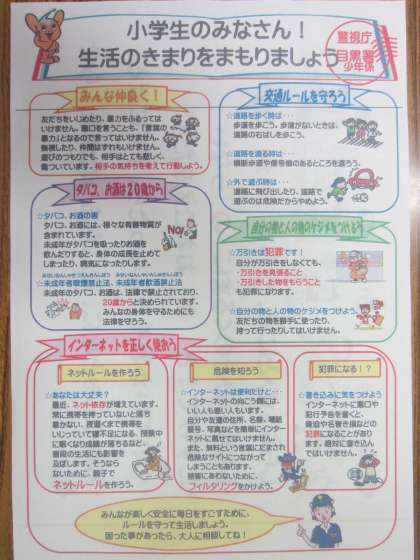 小学生のみなさん！
生活のきまりをまもりましょう
警視庁
目黒署
少年係
みんな仲良く！
友だちをいじめたり、暴力をふるっては
いけません。悪口を言うことも、「言葉の
暴力」となるのでやめて言ってはいけません。
無視したり、仲間はずれもいけません。
遊びのつもりでも、相手はとても悲しく、
傷ついています。相手の気持ちを考えて行動しよう。
交通ルールを守ろう
☆道路を歩く時は・・・
歩道を歩こう。歩道がないときは、
道路の右はしを歩こう。
☆道路を渡る時は・・・
横断歩道や信号機のあるところを渡ろう。
☆外で遊ぶ時は・・・
道路に飛び出したり、道路で
遊ぶのは危険だからやめよう。
タバコ、お酒は20歳から
☆タバコ、お酒の害
タバコ、お酒には、様々な有害物質が
含まれています。
未成年がタバコを吸ったりお酒を
飲んだりすると、身体の成長を止めて
しまったり、病気になったりします。
NO!
☆未成年者喫煙禁止法、未成年者飲酒禁止法
未成年のタバコ、お酒は、法律で禁止されており、
20歳からと決められています。
みんなの身体を守るためにも
法律を守ろう。
自分の物と人の物のケジメをつけよう
☆万引きは犯罪です！
自分が万引きをしなくても、
・万引きを見張ること
・万引きした物をもらうこと
も犯罪になります。
☆自分の物と人の物のケジメをつけよう
友だちの物を勝手に使ったり、
持って行ったりしてはいけません。
インターネットを正しく使おう
ネットルールを作ろう
☆あなたは大丈夫？
最近、ネット依存が増えています。
常に携帯を持っていないと落ち
着かない、夜遅くまで携帯を
いじっていて寝不足になる、授業中
に眠くなり成績が落ちるなど、
普段の生活にも影響を
及ぼします。そうなら
ないために、親子で
ネットルールを作ろう。
危険を知ろう
☆インターネットは便利だけど・・・
インターネットの向こう側には、
いい人も悪い人もいます。
自分や友達の住所、名前、電話
番号、写真などを簡単にインター
ネットに載せてはいけません。
また、無料という言葉にだまされ
危険なサイトにつながって
しまうこともあります。
被害にあわないために、
フィルタリングをかけよう。
犯罪になる！？
☆書き込みに気をつけよう
インターネットに悪口や
犯行予告を書くと、
脅迫や名誉き損などの
犯罪になることがあり
ます。絶対に書き込んで
はいけません。
みんなが楽しく安全に毎日をすごすために、
ルールを守って生活しましょう。
困った事があったら、大人に相談してね！